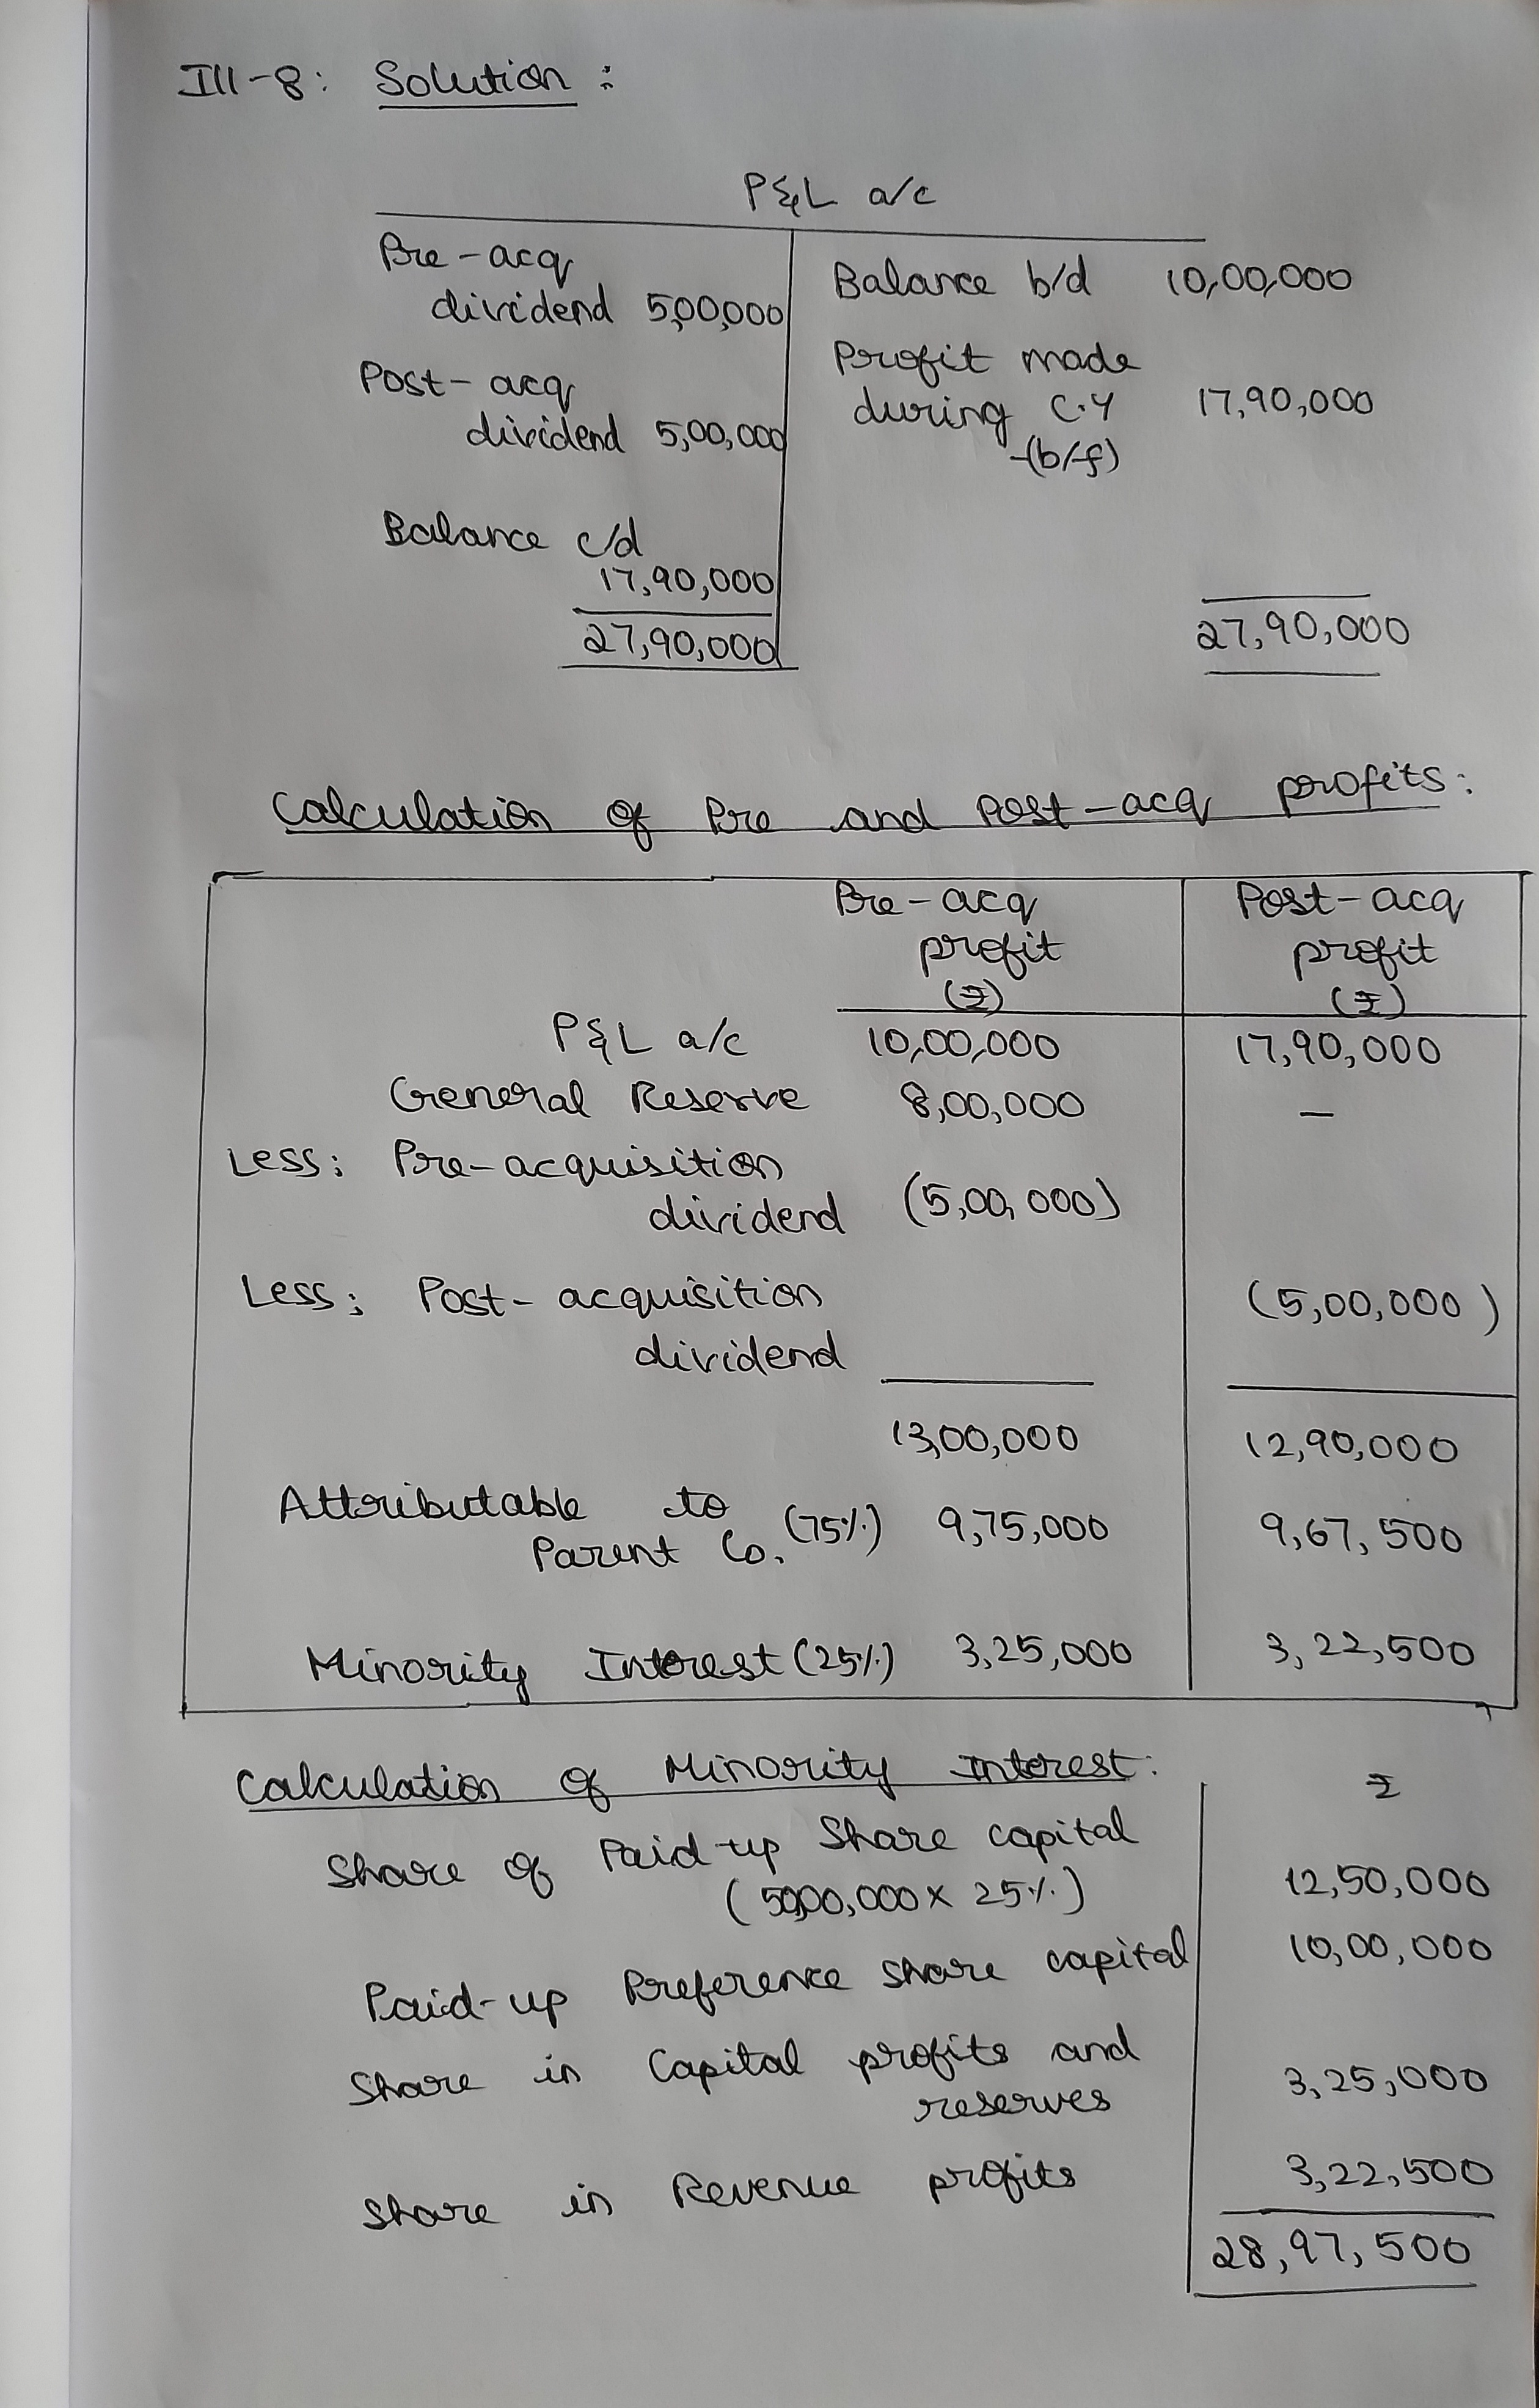 Ill-8: Solution :
P&L a/c
Pre-acq
dividend 5,00,000
Post-acq
dividend 5,00,000
Balance c/d
17,90,000
27,90,000
Balance b/d 10,00,000
Profit made
during C.Y 17,90,000
(b/f)
27,90,000
Calculation of Pre and Post-acq profits:
Pre-acq
profit
(₹)
Post-acq
profit
(₹)
P&L a/c 10,00,000 17,90,000
General Reserve 8,00,000 —
Less: Pre-acquisition
dividend (5,00,000)
Less: Post-acquisition
dividend (5,00,000)
13,00,000 12,90,000
Attributable to
Parent Co. (75%) 9,75,000 9,67,500
Minority Interest (25%) 3,25,000 3,22,500
Calculation of Minority Interest: ₹
Share of Paid-up Share capital
(5000,000 x 25%) 12,50,000
Paid-up Preference share capital 10,00,000
Share in Capital profits and
reserves 3,25,000
Share in Revenue profits 3,22,500
28,97,500